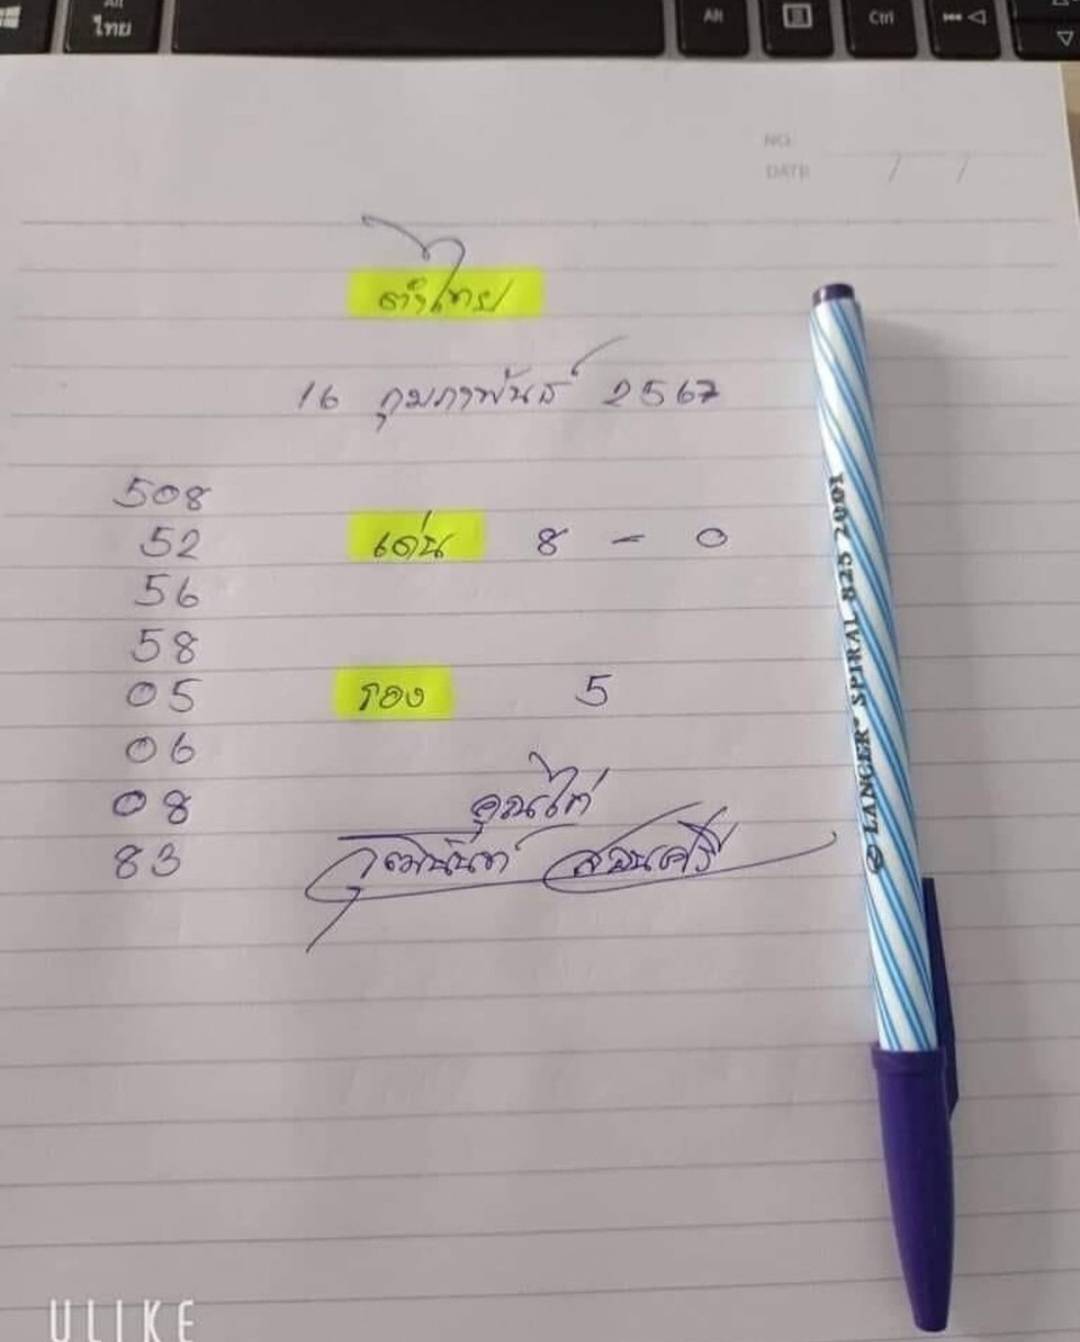 Alt
ไทย
Alt
Ctrl
NO.
DATE / /
ฮานอยไทย
16 กุมภาพันธ์ 2567
508
52
เด่น 8 - 0
56
58
05
รอง 5
06
08
83
LANCER SPIRAL 825 2001
ULIKE